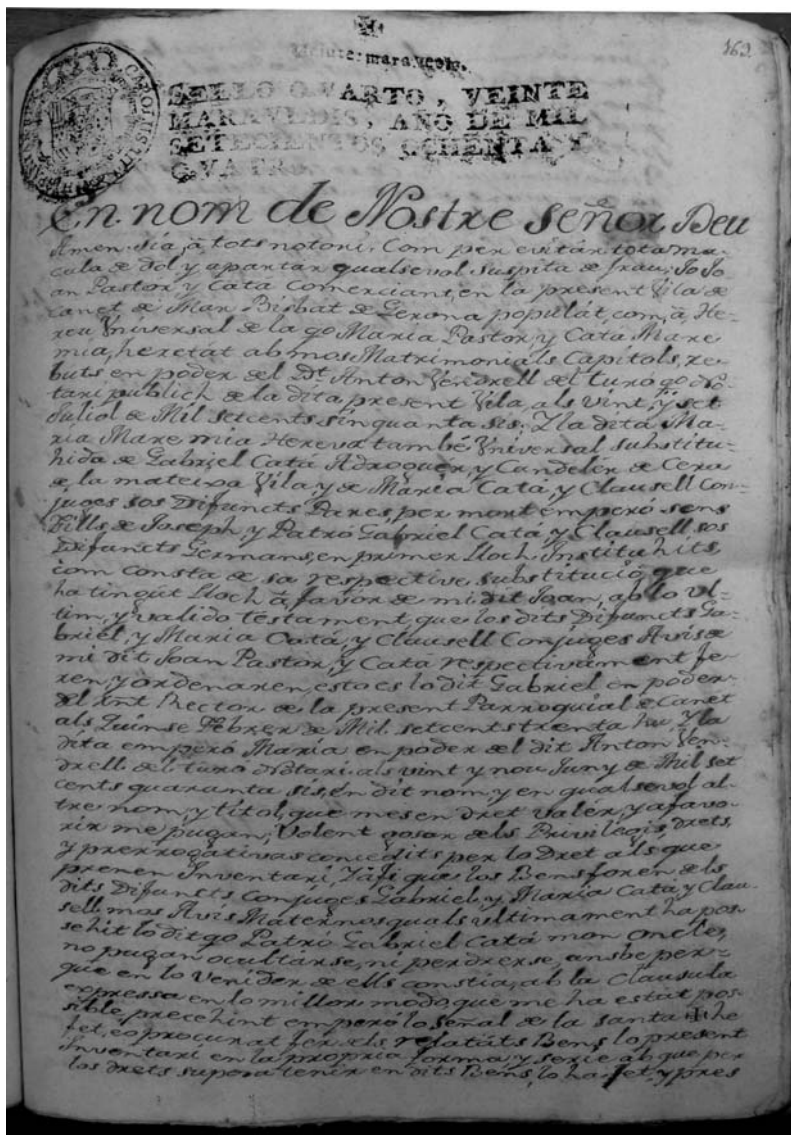 163.
Veinte maravedis.
SELLO QVARTO, VEINTE
MARAVEDIS, AÑO DE MIL
SETECIENTOS OCHENTA Y
QVATRO.
En nom de Nostre Señor Deu
Amen. Sia, à tots notori, Com per evitár tota ma-
cula de dol y apartar qualsevol suspita de frau; Jo Jo-
an Pastor, y Catá Comerciant, en la present Vila de
Canet de Mar Bisbat de Gerona populát, com, à, He-
reu Vniversal de la qo Maria Pastor, y Catá Mare
mia, heretát ab mos Matrimonials Capitols, re-
buts en poder del Dt. Anton Vendrell del turó qo No-
tari publich de la dita present Vila, als vint, y set
Juliol de Mil setcents sinquanta sis; Y la dita Ma-
ria Mare mia Hereva també Vniversal substitu-
hida de Gabriel Catá Adroguer, y Candelér de Cera
de la mateixa Vila, y de Maria Catá, y Clausell Con-
juges sos Difuncts Pares, per mort emperó sens
Fills, de Joseph, y Patró Gabriel Catá, y Clausell sos
Difuncts Germans, en primer Lloch Instituhits,
com consta de sa respective substitució que
ha tingut Lloch à, favor de mi dit Joan, ab lo Vl-
tim, y valido testament que los dits Difuncts Ga-
briel, y Maria Catá, y Clausell Conjuges Avis de
mi dit Joan Pastor, y Catá respectivament fe-
ren, y ordenaren, esto es lo dit Gabriel en poder
del Rector de la present Parroquial de Canet
als Quinse Febrer de Mil setcents trenta hu, y la
dita emperó Maria en poder del dit Anton Ven-
drell del turó Notari als vint y nou Juny de Mil set
cents quaranta sis, en dit nom, y en qualsevol al-
tre nom, y titol, que mes en dret valér, y afavo-
rir me pugan; Volent gosar dels Privilegis, drets,
y prerrogativas concedits per lo Dret als que
prenen Inventari, Y afi que los Bens foren dels
dits Difuncts Conjuges Gabriel, y Maria Catá y Clau-
sell mos Avis Maternos quals ultimament ha pos-
sehit lo dit qo Patró Gabriel Catá mon oncle,
no pugan ocultárse, ni pérdrerse, ans be per-
que en lo venider de ells constia, ab la Clausula
expressa en lo millor modo, que me ha estat pos-
sible, precehint emperó lo señal de la santa ✠ he
fet, eo procurat fer dels relatáts Bens lo present
Inventari en la propria forma, y serie ab que per
los drets supera tenir en dits Bens, lo ha fet, y pres